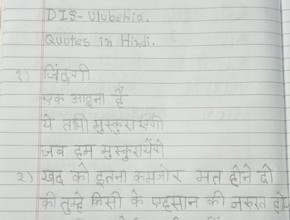 DIS- Ulubehia.
Quotes in Hindi.
१) जिंदगी
एक आइना है
ये तभी मुस्कुराएगी
जब हम मुस्कुरायेंगे
२) खुद को इतना कमजोर मत होने दो
की तुम्हे किसी के एहसान की जरुरत हो